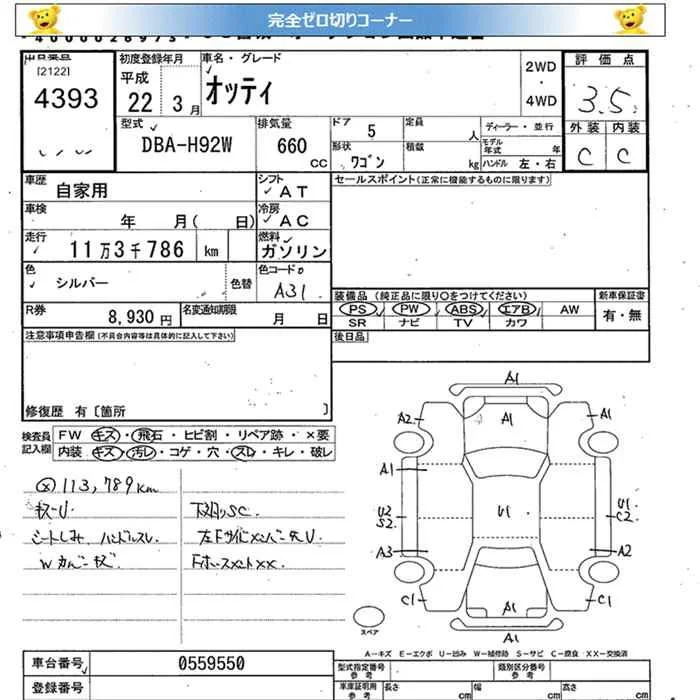 完全ゼロ切りコーナー
[2122]
4393
初度登録年月
平成
22年 3月
車名・グレード
オッティ
2WD
・
4WD
評価点
3.5
外装 内装
C C
型式
DBA-H92W
排気量
660
CC
ドア 5
定員 人
ディーラー・並行
形状 ワゴン
積載 kg
モデル年式 年
ハンドル 左・右
車歴
自家用
シフト
AT
セールスポイント(正常に機能するものに限ります)
車検
年 月( 日)
冷房
AC
走行
11万3千786 km
燃料
ガソリン
色
シルバー
色替
色コードNo
A31
装備品 (純正品に限り○をつけてください)
新車保証書
PS PW ABS エアB AW
SR ナビ TV カワ
有・無
R券
8,930円
名変通知期限
月 日
注意事項申告欄(不具合内容等は具体的に記入して下さい)
後日品
修復歴 有〔箇所 〕
検査員記入欄
FW キズ・飛石・ヒビ割・リペア跡・×要
内装 キズ・汚レ・コゲ・穴・スレ・キレ・破レ
113,789km
キズ・U
下廻りSC.
シートしみ、ハンドルスレ
左FサイドメンバーチU
Wカバーキズ
A1
A2
A1
A1
A1
U2
S2
U1
U1
C2
A3
A2
C1
A1
C1
A1
スペア
A-キズ E-エクボ U-凹み W-補修跡 S-サビ C-腐食 XX-交換済
車台番号
0559550
登録番号
型式指定番号
参考
類別区分番号
参考
車庫証明用
参考
長さ cm
幅 cm
高さ cm